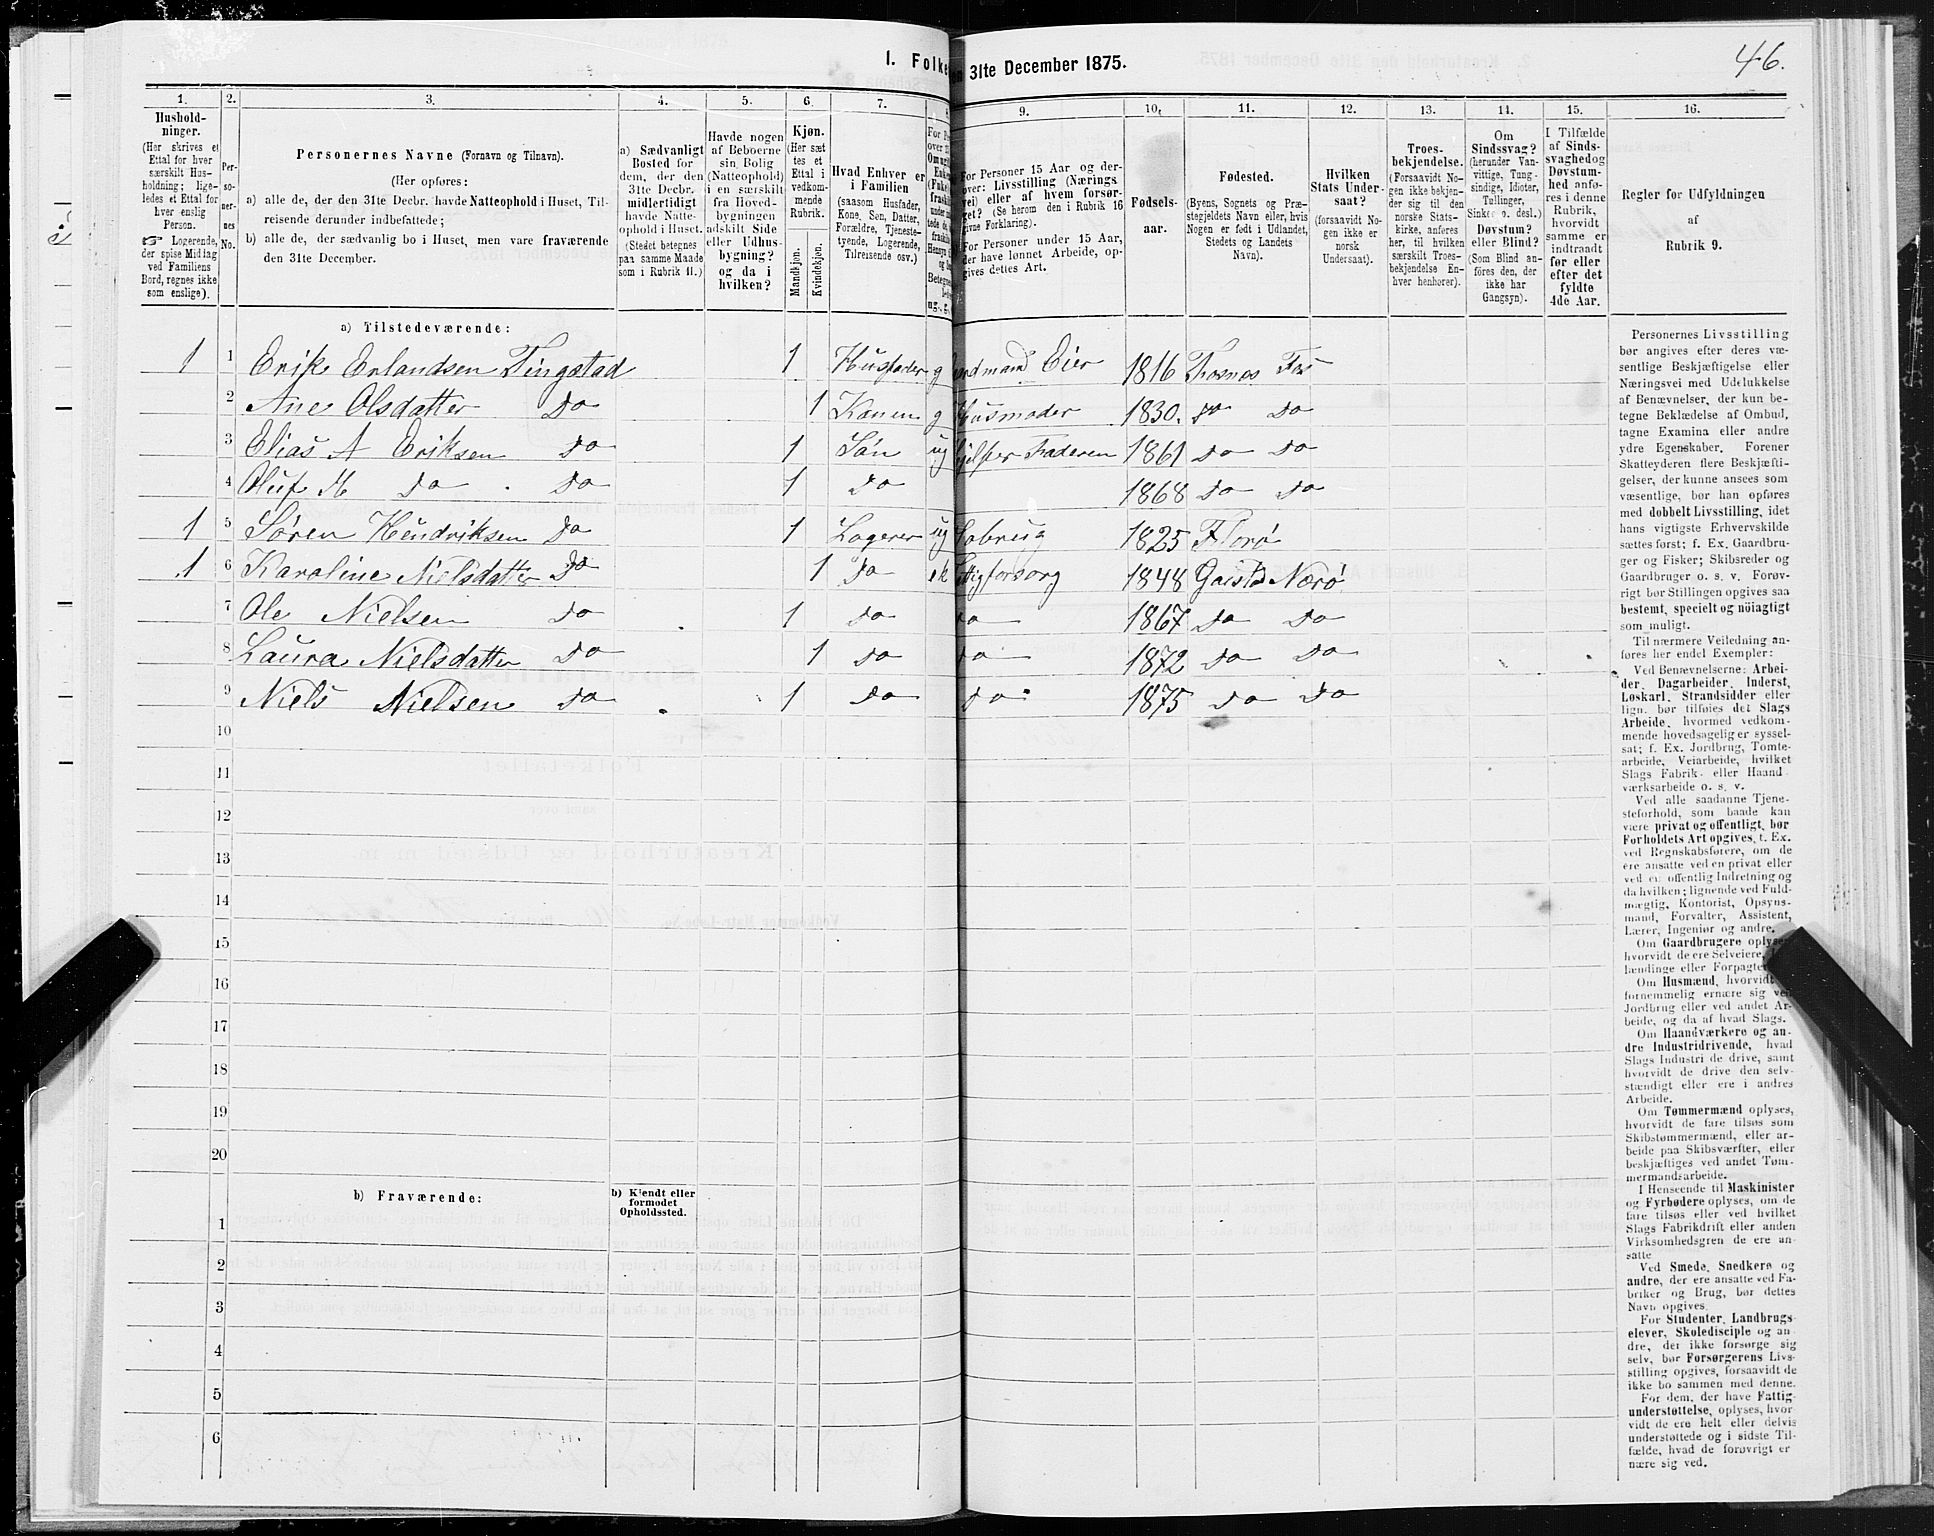 46.
1. Folke en 31te December 1875.
1. 2. 3. 4. 5. 6. 7. 8 9. 10. 11. 12. 13. 14. 15. 16.
Hushold-
ninger.
(Her skrives et
Ettal for hver
særskilt Hus-
holdning; lige-
ledes et Ettal for
hver enslig
Person.
☞ Logerende,
der spise Middag
ved Familiens
Bord, regnes ikke
som enslige).
Per-
so-
ner-
nes
No.
Personernes Navne (Fornavn og Tilnavn).
(Her opføres:
a) alle de, der den 31te Decbr. havde Natteophold i Huset, Til-
reisende derunder indbefattede;
b) alle de, der sædvanlig bo i Huset, men vare fraværende
den 31te December.
a) Sædvanligt
Bosted for
dem, der den
31te Decbr.
midlertidigt
havde Natte-
ophold i Huset.
(Stedet betegnes
paa samme Maade
som i Rubrik 11.)
Havde nogen
af Beboerne
sin Bolig
(Natteophold)
i en særskilt
fra Hoved-
bygningen
adskilt Side
eller Udhus-
bygning?
og da i
hvilken?
Kjøn.
(Her sæt-
tes et
Ettal i
vedkom-
mende
Rubrik.
Mandkjøn.
Kvindekjøn.
Hvad Enhver er
i Familien
(saasom Husfader,
Kone, Søn, Datter,
Forældre, Tjeneste-
tyende, Logerende,
Tilreisende osv.)
For Personer 15 Aar og der-
over: Livsstilling (Nærings
vei) eller af hvem forsør-
get? (Se herom den i Rubrik 16
givne Forklaring).
For Personer under 15 Aar,
der have lønnet Arbeide, op-
gives dettes Art.
Fødsels-
aar.
Fødested.
(Byens, Sognets og Præ-
stegjeldets Navn eller, hvis
Nogen er født i Udlandet,
Stedets og Landets
Navn).
Hvilken
Stats Under-
saat?
(forsaavidt No-
gen ikke er
norsk
Undersaat).
Troes-
bekjendelse.
(Forsaavidt No-
gen ikke bekjen-
der sig til den
norske Stats-
kirke, anføres
her, til hvilken
særskilt Troes-
bekjendelse En-
hver henhører).
Om
Sindssvag?
(herunder Van-
vittige, Tung-
sindige, Idioter,
Tullinger,
Sinker o. desl.)
Døvstum?
eller Blind?
(Som Blind an-
føres den, der
ikke har
Gangsyn).
I Tilfælde
af Sinds-
svaghedog
Døvstum-
hed anfø-
res i denne
Rubrik,
hvorvidt
samme er
indtraadt
før eller
efter det
fyldte
4de Aar.
Regler for Udfyldningen
af
Rubrik 9.
a) Tilstedeværende:
1 1 Erik Erlandsen Tingstad 1 Husfader g Gardmand Eier 1816 Fosnes Fos
2 Ane Olsdatter Do 1 Konen g Husmoder 1830. Do Do
3 Elias A Eriksen Do 1 Søn ug hjelper Faderen 1861 Do Do
4 Oluf M Do Do 1 Do 1868 Do Do
1 5 Søren Hendriksen Do 1 Logerer ug 1825 Florø
1 6 Karoline Nielsdatter Do 1 Do ek Fattigforsorg 1848 Nærø
7 Ole Nielsen Do 1 Do Do 1867 Do Do
8 Laura Nielsdatter Do 1 Do Do 1872 Do Do
9 Niels Nielsen Do 1 Do Do 1875 Do Do
10
11
12
13
14
15
16
17
18
19
20
b) Fraværende:
b) Kjendt eller
formodet
Opholdssted.
1
2
3
4
5
6
Personernes Livsstilling
bør angives efter deres væ-
sentlige Beskjæftigelse eller
Næringsvei med Udelukkelse
af Benævnelser, der kun be-
tegne Beklædelse af Ombud,
tagne Examina eller andre
ydre Egenskaber. Forener
Skatteyderen flere Beskjæfti-
gelser, der kunne ansees som
væsentlige, bør han opføres
med dobbelt Livsstilling, idet
hans vigtigste Erhvervskilde
sættes først; f. Ex. Gaardbru-
ger og Fisker; Skibsreder og
Gaardbruger o. s. v. Forøv-
rigt bør Stillingen opgives saa
bestemt, specielt og nöiagtigt
som muligt.
Til nærmere Veiledning an-
føres her endel Exempler:
Ved Benævnelserne: Arbei-
der, Dagarbeider, Inderst,
Løskarl, Strandsidder eller
lign. bør tilføies det Slags
Arbeide, hvormed vedkom-
mende hovedsagelig er syssel-
sat; f. Ex. Jordbrug, Tomte-
arbeide, Veiarbeide, hvilket
Slags Fabrik- eller Haand-
værksarbeide o. s. v.
Ved alle saadanne Tjene-
steforhold, som baade kan
være privat og offentligt, bør
Forholdets Art opgives, t. Ex.
ved Regnskabsførere, om de
ere ansatte ved en privat eller
ved en offentlig Indretning og
da hvilken; lignende ved Fuld-
mægtig, Kontorist, Opsyns-
mand, Forvalter, Assistent,
Lærer, Ingeniør og andre.
Om Gaardbrugere oplyses
hvorvidt de ere Selveiere,
lændinge eller Forpagtere
Om Husmænd, hvorvidt
fornemmelig ernære sig ved
Jordbrug eller ved andet Ar-
beide, og da af hvad Slags.
Om Haandværkere og an-
dre Industridrivende, hvad
Slags Industri de drive, samt
hvorvidt de drive den selv-
stændigt eller ere i andres
Arbeide.
Om Tømmermænd oplyses,
hvorvidt de fare tilsøs som
Skibstømmermænd, eller ar-
beide paa Skibsværfter, eller
beskjæftiges ved andet Tøm-
mermandsarbeide.
I Henseende til Maskinister
og Fyrbødere oplyses, om de
fare tilsøs eller ved hvilket
Slags Fabrikdrift eller anden
Virksomhedsgren de ere an-
satte
Ved Smede, Snedkere og
andre, der ere ansatte ved Fa-
briker og Brug, bør dettes
Navn opgives.
For Studenter, Landbrugs-
elever, Skoledisciple og an-
dre, der ikke forsørge sig
selv, bør Forsørgerens Livs-
stilling opgives, forsaavidt de
ikke bo sammen med denne.
For dem, der have Fattig-
understøttelse, oplyses, hvor-
vidt de ere helt eller delvis
understøttede og i sidste Til-
fælde, hvad de forøvrigt er
nære sig ved.